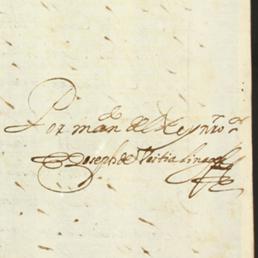 Por man.do del Rey nro s.r
Joseph de Veitia Linage